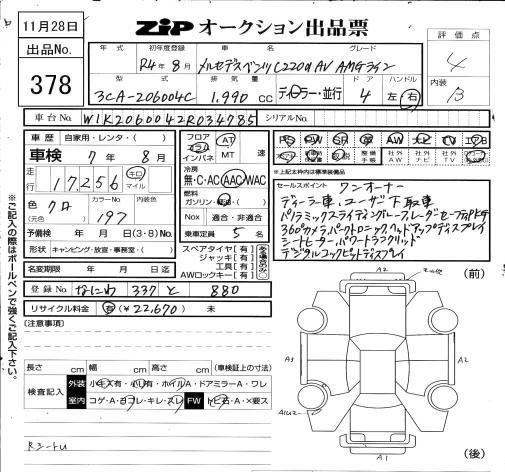 11月28日
出品No.
378
ZiP オークション出品票
評価点
4
内装
B
年式 初年度登録 車名 グレード
R4年8月 メルセデスベンツ C220d AV AMGライン
型式 排気量 ドア ハンドル
3CA-206004C 1,990 cc ディーラー・並行 4 左・右
車台No. W1K2060042R034785 シリアルNo.
車歴 自家用・レンタ・( )
車検 7年8月
走行 17256 キロ マイル
色 クロ (元色) カラーNo. 197
予備検 年 月 日(3・8)No.
形状 キャンピング・放送・事務室・( )
名変期限 年 月 日迄
フロア コラム インパネ AT MT 速
冷房 無・C・AC・AAC・WAC
燃料 ガソリン・軽油・( )
Nox 適合・非適合
乗車定員 5 名
スペアタイヤ [有]
ジャッキ [有]
工具 [有]
AWロックキー [有]
PS PW SR 革 AW ナビ TV エアB
整備手帳 社外AW 社外ナビ 社外TV
※上記太枠内は標準装備品
セールスポイント ワンオーナー
ディーラー車、ユーザー下取車
パノラミックスライディングルーフ、レーダーセーフティPKG
360°カメラ、パークトロニック、ヘッドアップディスプレイ
シートヒーター、パワートランクリッド
デジタルコックピットディスプレイ
登録No. なにわ 337 と 880
リサイクル料金 有(¥22,670) 未
[注意事項]
長さ cm 幅 cm 高さ cm (車検証上の寸法)
検査記入 外装 小キズ有・小凹有・ホイルA・ドアミラーA・ワレ
室内 コゲ・A・ヨゴレ・キレ・スレ FW トビ石・A・×要ス
Rシートu
※ご記入の際はボールペンで強くご記入下さい。
(前)
A2
A3
A2
A1
(後)